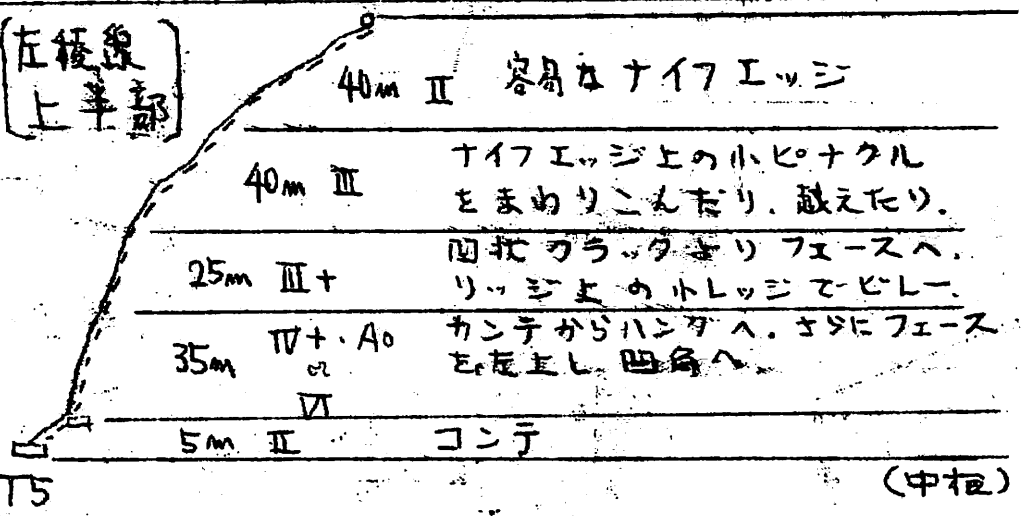 左稜線
上半部
40m Ⅱ 容易なナイフエッジ
40m Ⅲ ナイフエッジ上の小ピナクル
をまわりこんだり、越えたり.
25m Ⅲ+ 凹状クラックよりフェースへ.
リッジ上の小レッジでビレー.
35m Ⅳ+・A0 or Ⅵ カンテからハングへ. さらにフェース
を左上し凹角へ.
5m Ⅱ コンテ
T5
(中桓)